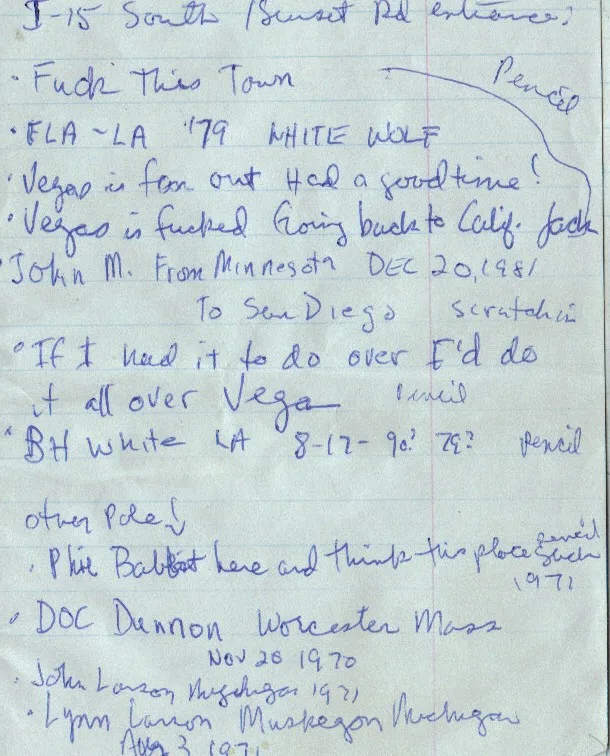 I-15 South / Sunset Rd entrance:
• Fuck This Town Pencil
• FLA - LA '79 WHITE WOLF
• Vegas is far out Had a good time!
• Vegas is fucked Going back to Calif. Jack
• John M. From Minnesota DEC 20, 1981
To San Diego scratch in
• If I had it to do over I'd do
it all over Vega pencil
• BH White LA 8-17- 90? 79? pencil
other Pole ↓
• Phil here and think this place Suck pencil
1971
• DOC Dannon Worcester Mass
Nov 20 1970
• John Larson 1971
• Lynn Larson Muskegon Michigan
Aug 3 1971